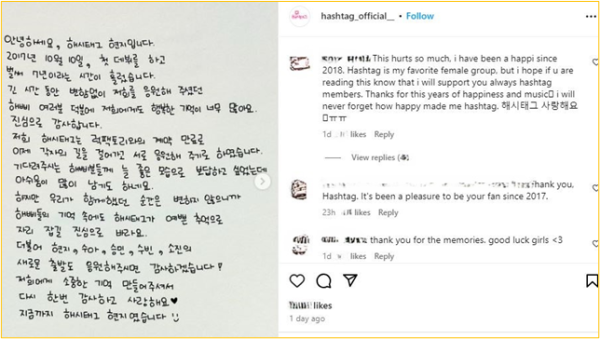 안녕하세요, 해시태그 현지입니다.
2017년 10월 10일, 첫 데뷔를 하고
벌써 7년이라는 시간이 흘렀습니다.
긴 시간 동안 변함없이 저희를 응원해 주셨던
해삐 여러분 덕분에 저희에게도 행복한 기억이 너무 많아요.
진심으로 감사합니다.
저희 해시태그는 럭팩토리와의 계약 만료로
이제 각자의 길을 걸어가고 서로 응원해 주기로 하였습니다.
기다려주시는 해삐분들께 늘 좋은 모습으로 보답하고 싶었는데
아쉬움이 많이 남기도 하네요.
하지만 우리가 함께했던 순간은 변하지 않으니까
해삐들의 기억 속에도 해시태그가 예쁜 추억으로
자리 잡길 진심으로 바라요.
더불어 현지, 수아, 승민, 수빈, 소진의
새로운 출발도 응원해주시면 감사하겠습니다!
저희에게 소중한 기억 만들어주셔서
다시 한번 감사하고 사랑해요♥
지금까지 해시태그 현지였습니다 :)
hashtag_official__ • Follow
This hurts so much, i have been a happi since
2018. Hashtag is my favorite female group, but i hope if u are
reading this know that i will support you always hashtag
members. Thanks for this years of happiness and music i will
never forget how happy made me hashtag. 해시태그 사랑해요
ㅠㅠ
1d likes Reply
View replies
thank you,
Hashtag. It's been a pleasure to be your fan since 2017.
23h likes Reply
thank you for the memories. good luck girls <3
1d likes Reply
likes
1 day ago